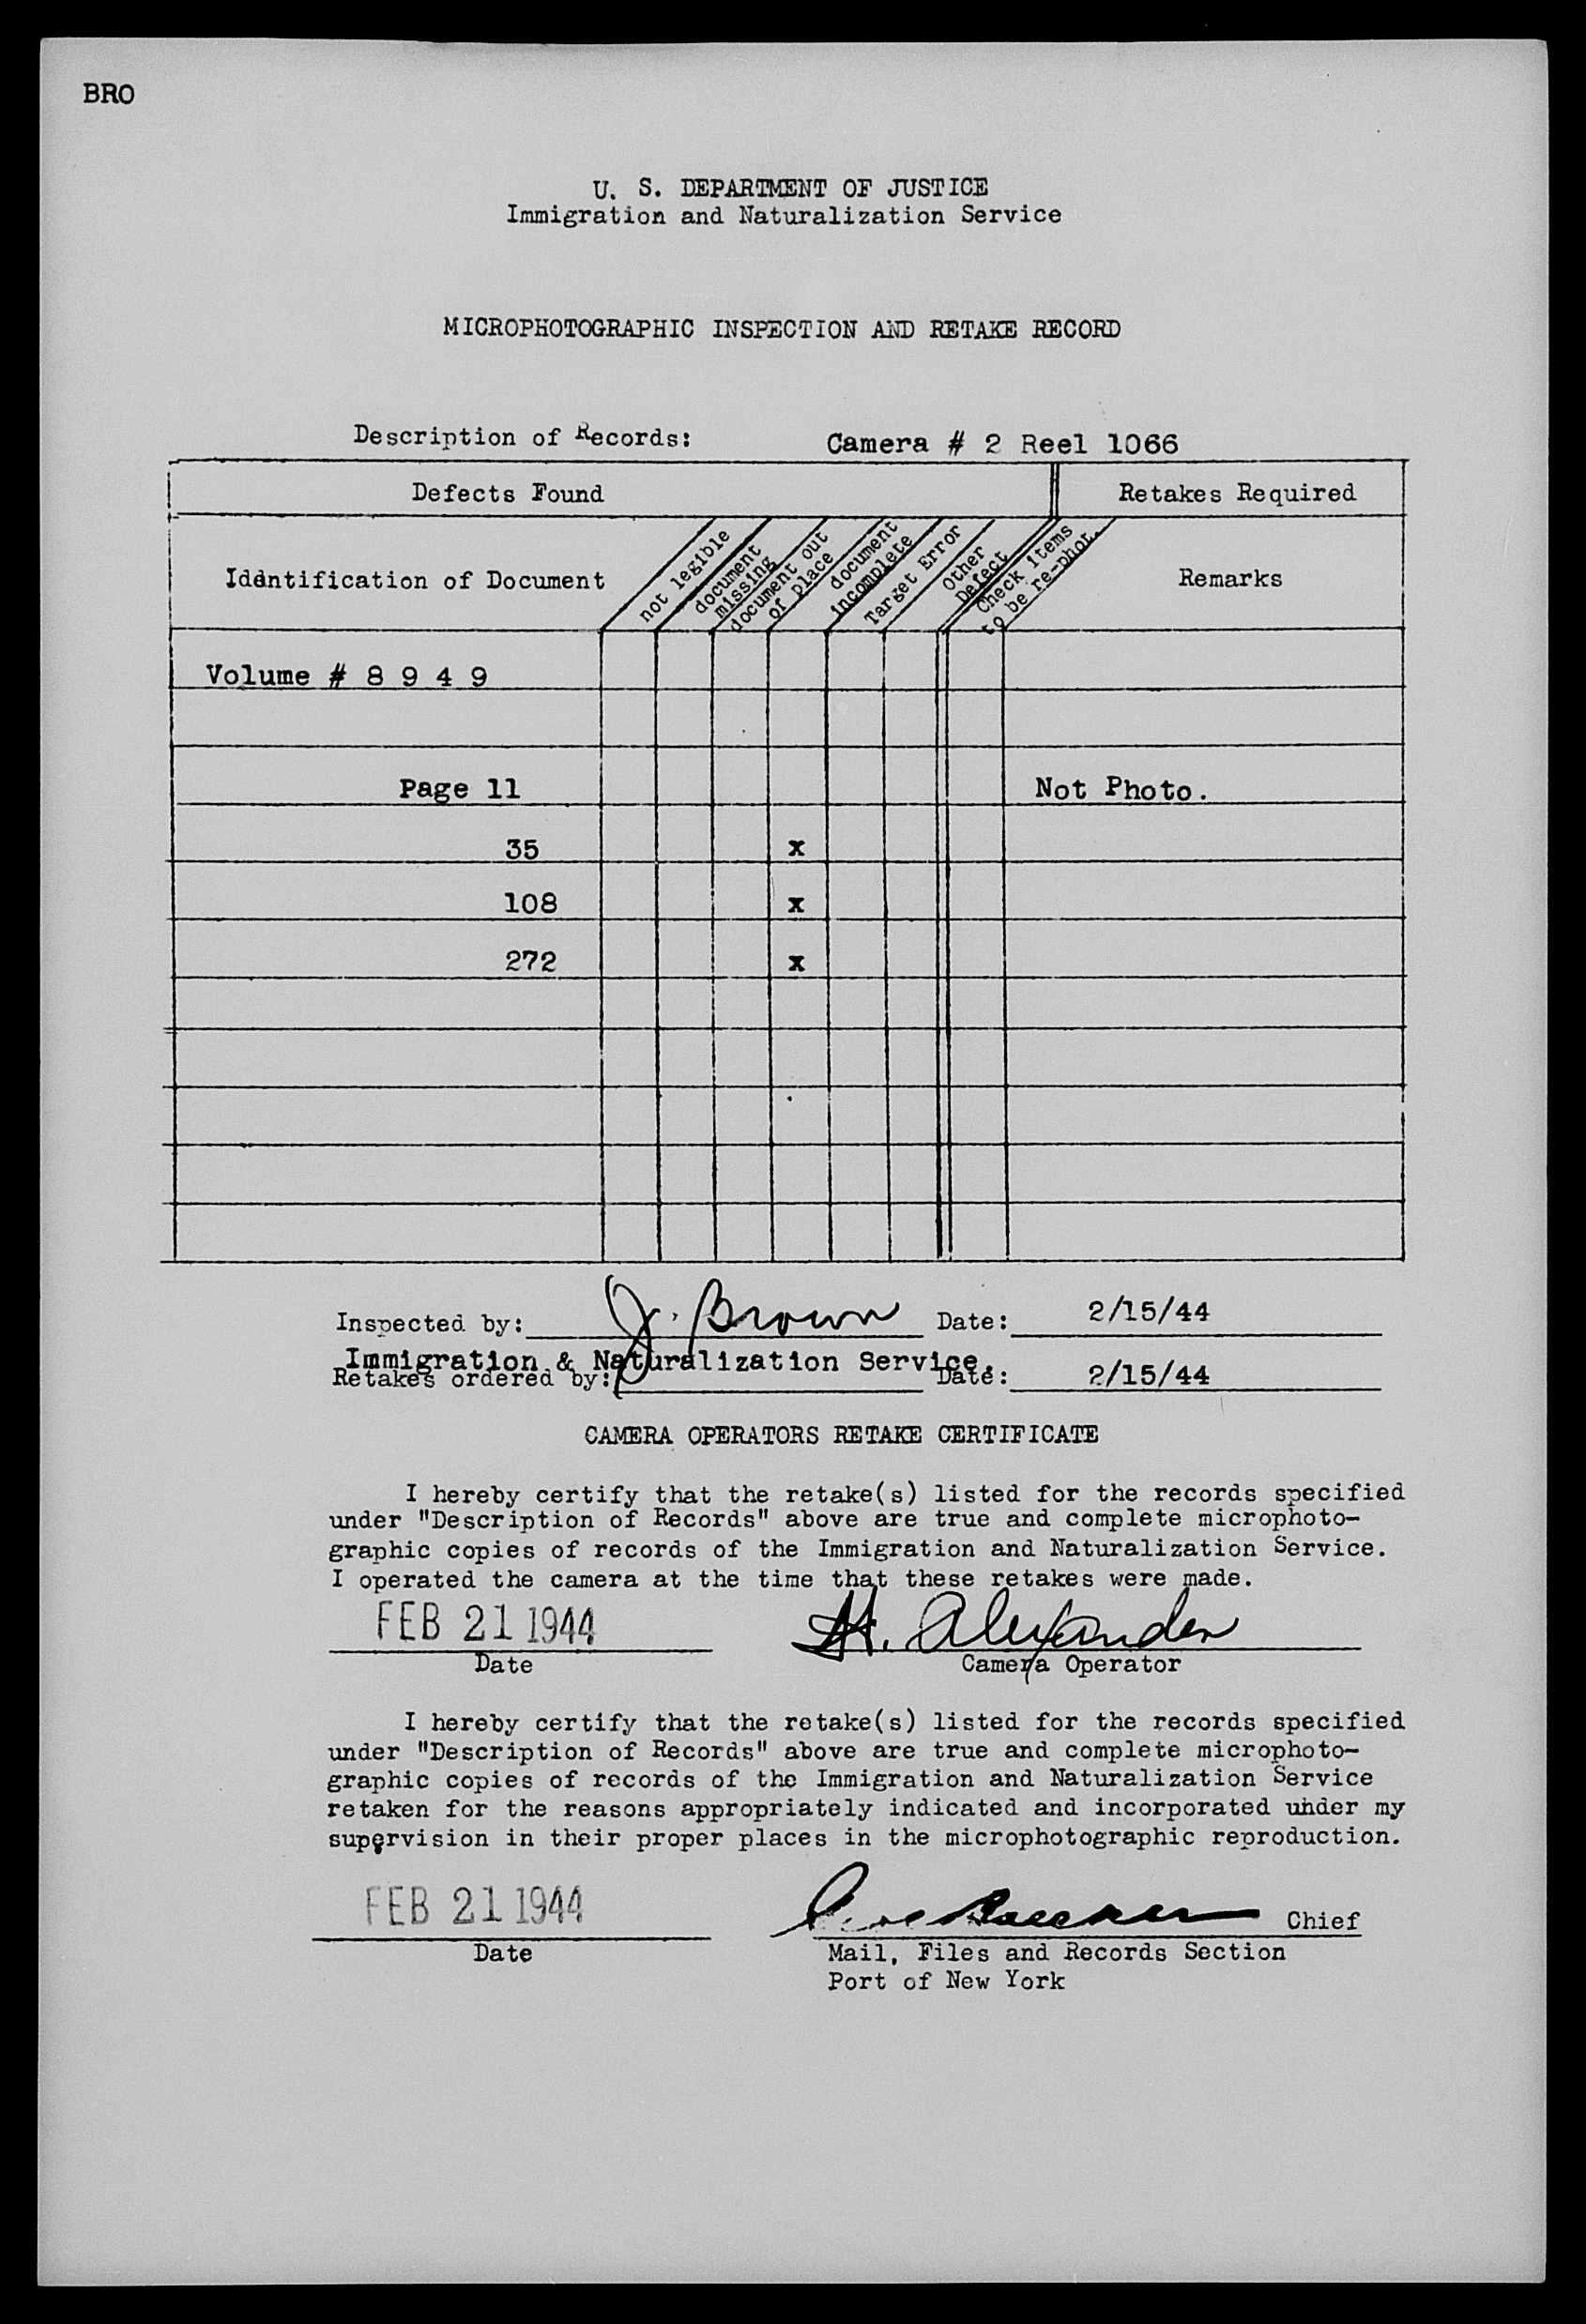 BRO
U. S. DEPARTMENT OF JUSTICE
Immigration and Naturalization Service
MICROPHOTOGRAPHIC INSPECTION AND RETAKE RECORD
Description of Records: Camera # 2 Reel 1066
Defects Found Retakes Required
Idantification of Document
not legible
document missing
document out of place
document incomplete
Target Error
Other Defect
Check items to be re-phot.
Remarks
Volume # 8 9 4 9
Page 11 Not Photo.
35 x
108 x
272 x
Inspected by: J. Brown Date: 2/15/44
Immigration & Naturalization Service.
Retakes ordered by: Date: 2/15/44
CAMERA OPERATORS RETAKE CERTIFICATE
I hereby certify that the retake(s) listed for the records specified
under "Description of Records" above are true and complete microphoto-
graphic copies of records of the Immigration and Naturalization Service.
I operated the camera at the time that these retakes were made.
FEB 21 1944 H. Alexander
Date Camera Operator
I hereby certify that the retake(s) listed for the records specified
under "Description of Records" above are true and complete microphoto-
graphic copies of records of the Immigration and Naturalization Service
retaken for the reasons appropriately indicated and incorporated under my
supervision in their proper places in the microphotographic reproduction.
FEB 21 1944 Chief
Date Mail, Files and Records Section
Port of New York